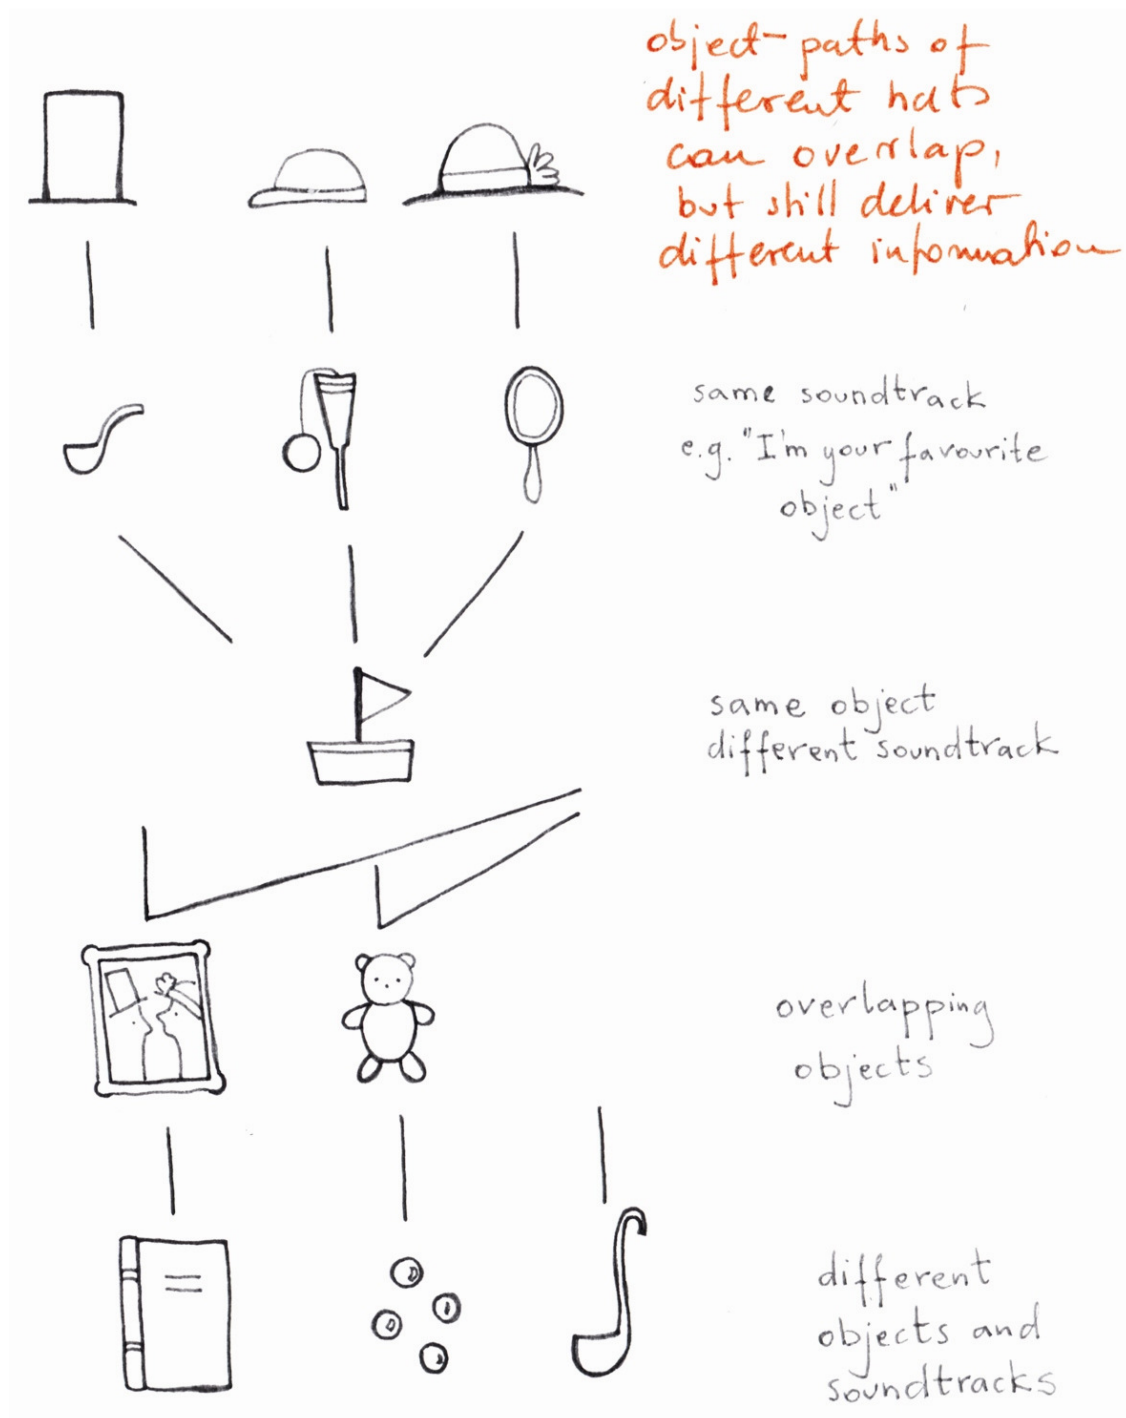 object-paths of
different hats
can overlap,
but still deliver
different information
same soundtrack
e.g. "I'm your favourite
object"
same object
different soundtrack
overlapping
objects
different
objects and
soundtracks